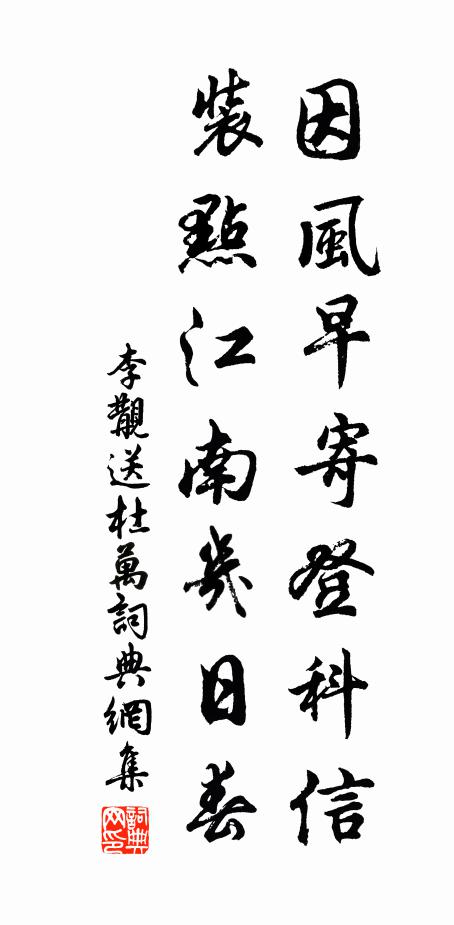 因風早寄登科信
裝點江南幾日春
李觀送杜萬詞典網集
詞典网印